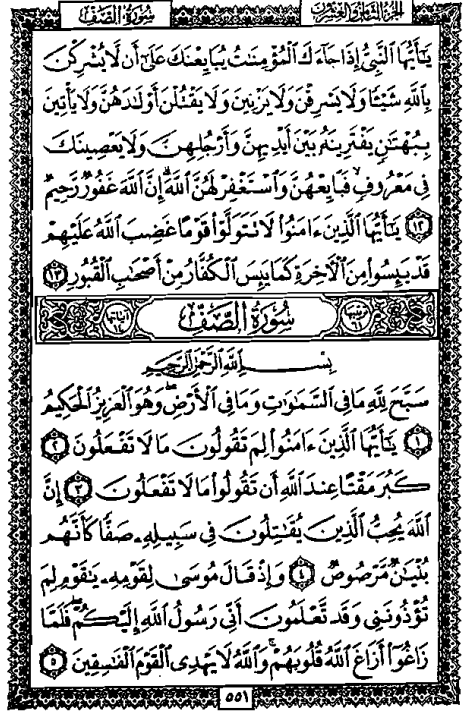 سُورَةُ الصَّفِّ
الجُزْءُ الثَّامِنُ وَالعِشْرُونَ
يَٰٓأَيُّهَا ٱلنَّبِيُّ إِذَا جَآءَكَ ٱلْمُؤْمِنَٰتُ يُبَايِعْنَكَ عَلَىٰٓ أَن لَّا يُشْرِكْنَ
بِٱللَّهِ شَيْـًٔا وَلَا يَسْرِقْنَ وَلَا يَزْنِينَ وَلَا يَقْتُلْنَ أَوْلَٰدَهُنَّ وَلَا يَأْتِينَ
بِبُهْتَٰنٍ يَفْتَرِينَهُۥ بَيْنَ أَيْدِيهِنَّ وَأَرْجُلِهِنَّ وَلَا يَعْصِينَكَ
فِى مَعْرُوفٍ ۙ فَبَايِعْهُنَّ وَٱسْتَغْفِرْ لَهُنَّ ٱللَّهَ ۖ إِنَّ ٱللَّهَ غَفُورٌ رَّحِيمٌ
١٢ يَٰٓأَيُّهَا ٱلَّذِينَ ءَامَنُوا۟ لَا تَتَوَلَّوْا۟ قَوْمًا غَضِبَ ٱللَّهُ عَلَيْهِمْ
قَدْ يَئِسُوا۟ مِنَ ٱلْءَاخِرَةِ كَمَا يَئِسَ ٱلْكُفَّارُ مِنْ أَصْحَٰبِ ٱلْقُبُورِ ١٣
ترتيبها ٦١ سُورَةُ الصَّفِّ آياتها ١٤
بِسْمِ ٱللَّهِ ٱلرَّحْمَٰنِ ٱلرَّحِيمِ
سَبَّحَ لِلَّهِ مَا فِى ٱلسَّمَٰوَٰتِ وَمَا فِى ٱلْأَرْضِ ۖ وَهُوَ ٱلْعَزِيزُ ٱلْحَكِيمُ
١ يَٰٓأَيُّهَا ٱلَّذِينَ ءَامَنُوا۟ لِمَ تَقُولُونَ مَا لَا تَفْعَلُونَ ٢
كَبُرَ مَقْتًا عِندَ ٱللَّهِ أَن تَقُولُوا۟ مَا لَا تَفْعَلُونَ ٣ إِنَّ
ٱللَّهَ يُحِبُّ ٱلَّذِينَ يُقَٰتِلُونَ فِى سَبِيلِهِۦ صَفًّا كَأَنَّهُم
بُنْيَٰنٌ مَّرْصُوصٌ ٤ وَإِذْ قَالَ مُوسَىٰ لِقَوْمِهِۦ يَٰقَوْمِ لِمَ
تُؤْذُونَنِى وَقَد تَّعْلَمُونَ أَنِّى رَسُولُ ٱللَّهِ إِلَيْكُمْ ۖ فَلَمَّا
زَاغُوٓا۟ أَزَاغَ ٱللَّهُ قُلُوبَهُمْ ۚ وَٱللَّهُ لَا يَهْدِى ٱلْقَوْمَ ٱلْفَٰسِقِينَ ٥
٥٥١